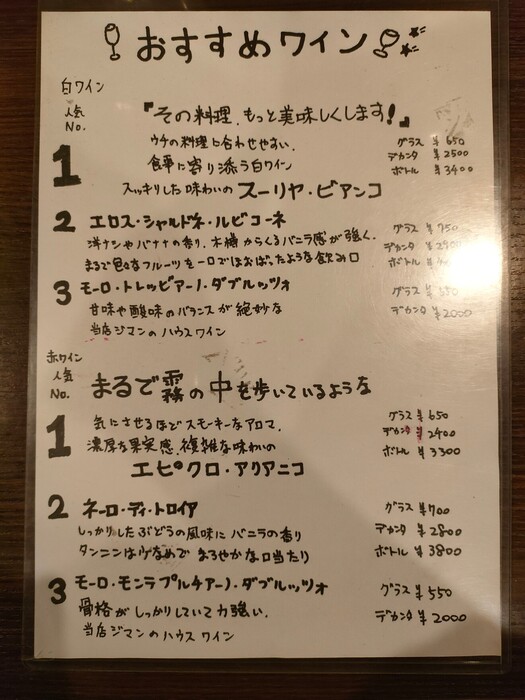 おすすめワイン
白ワイン
人気
No.
1
『その料理、もっと美味しくします!』
ウチの料理に合わせやすい、
食事に寄り添う白ワイン
スッキリした味わいの スーリヤ・ビアンコ
グラス ¥650
デカンタ ¥2500
ボトル ¥3400
2 エロス・シャルドネ・ルビコーネ
洋ナシやバナナの香り、木樽からくるバニラ感が強く、
まるで色々なフルーツを一口でほおばったような飲み口
グラス ¥750
デカンタ
ボトル
3 モーロ・トレッビアーノ・ダブルッツォ
甘味や酸味のバランスが絶妙な
当店ジマンのハウスワイン
グラス ¥550
デカンタ ¥2000
赤ワイン
人気
No.
1
まるで霧の中を歩いているような
気にさせるほどスモーキーなアロマ、
濃厚な果実感、複雑な味わいの
エピクロ・アリアニコ
グラス ¥650
デカンタ ¥2400
ボトル ¥3300
2 ネーロ・ディ・トロイア
しっかりしたぶどうの風味にバニラの香り
タンニンはひかえめで まろやかな口当たり
グラス ¥700
デカンタ ¥2800
ボトル ¥3800
3 モーロ・モンテプルチアーノ・ダブルッツォ
骨格がしっかりしていて力強い、
当店ジマンのハウスワイン
グラス ¥550
デカンタ ¥2000